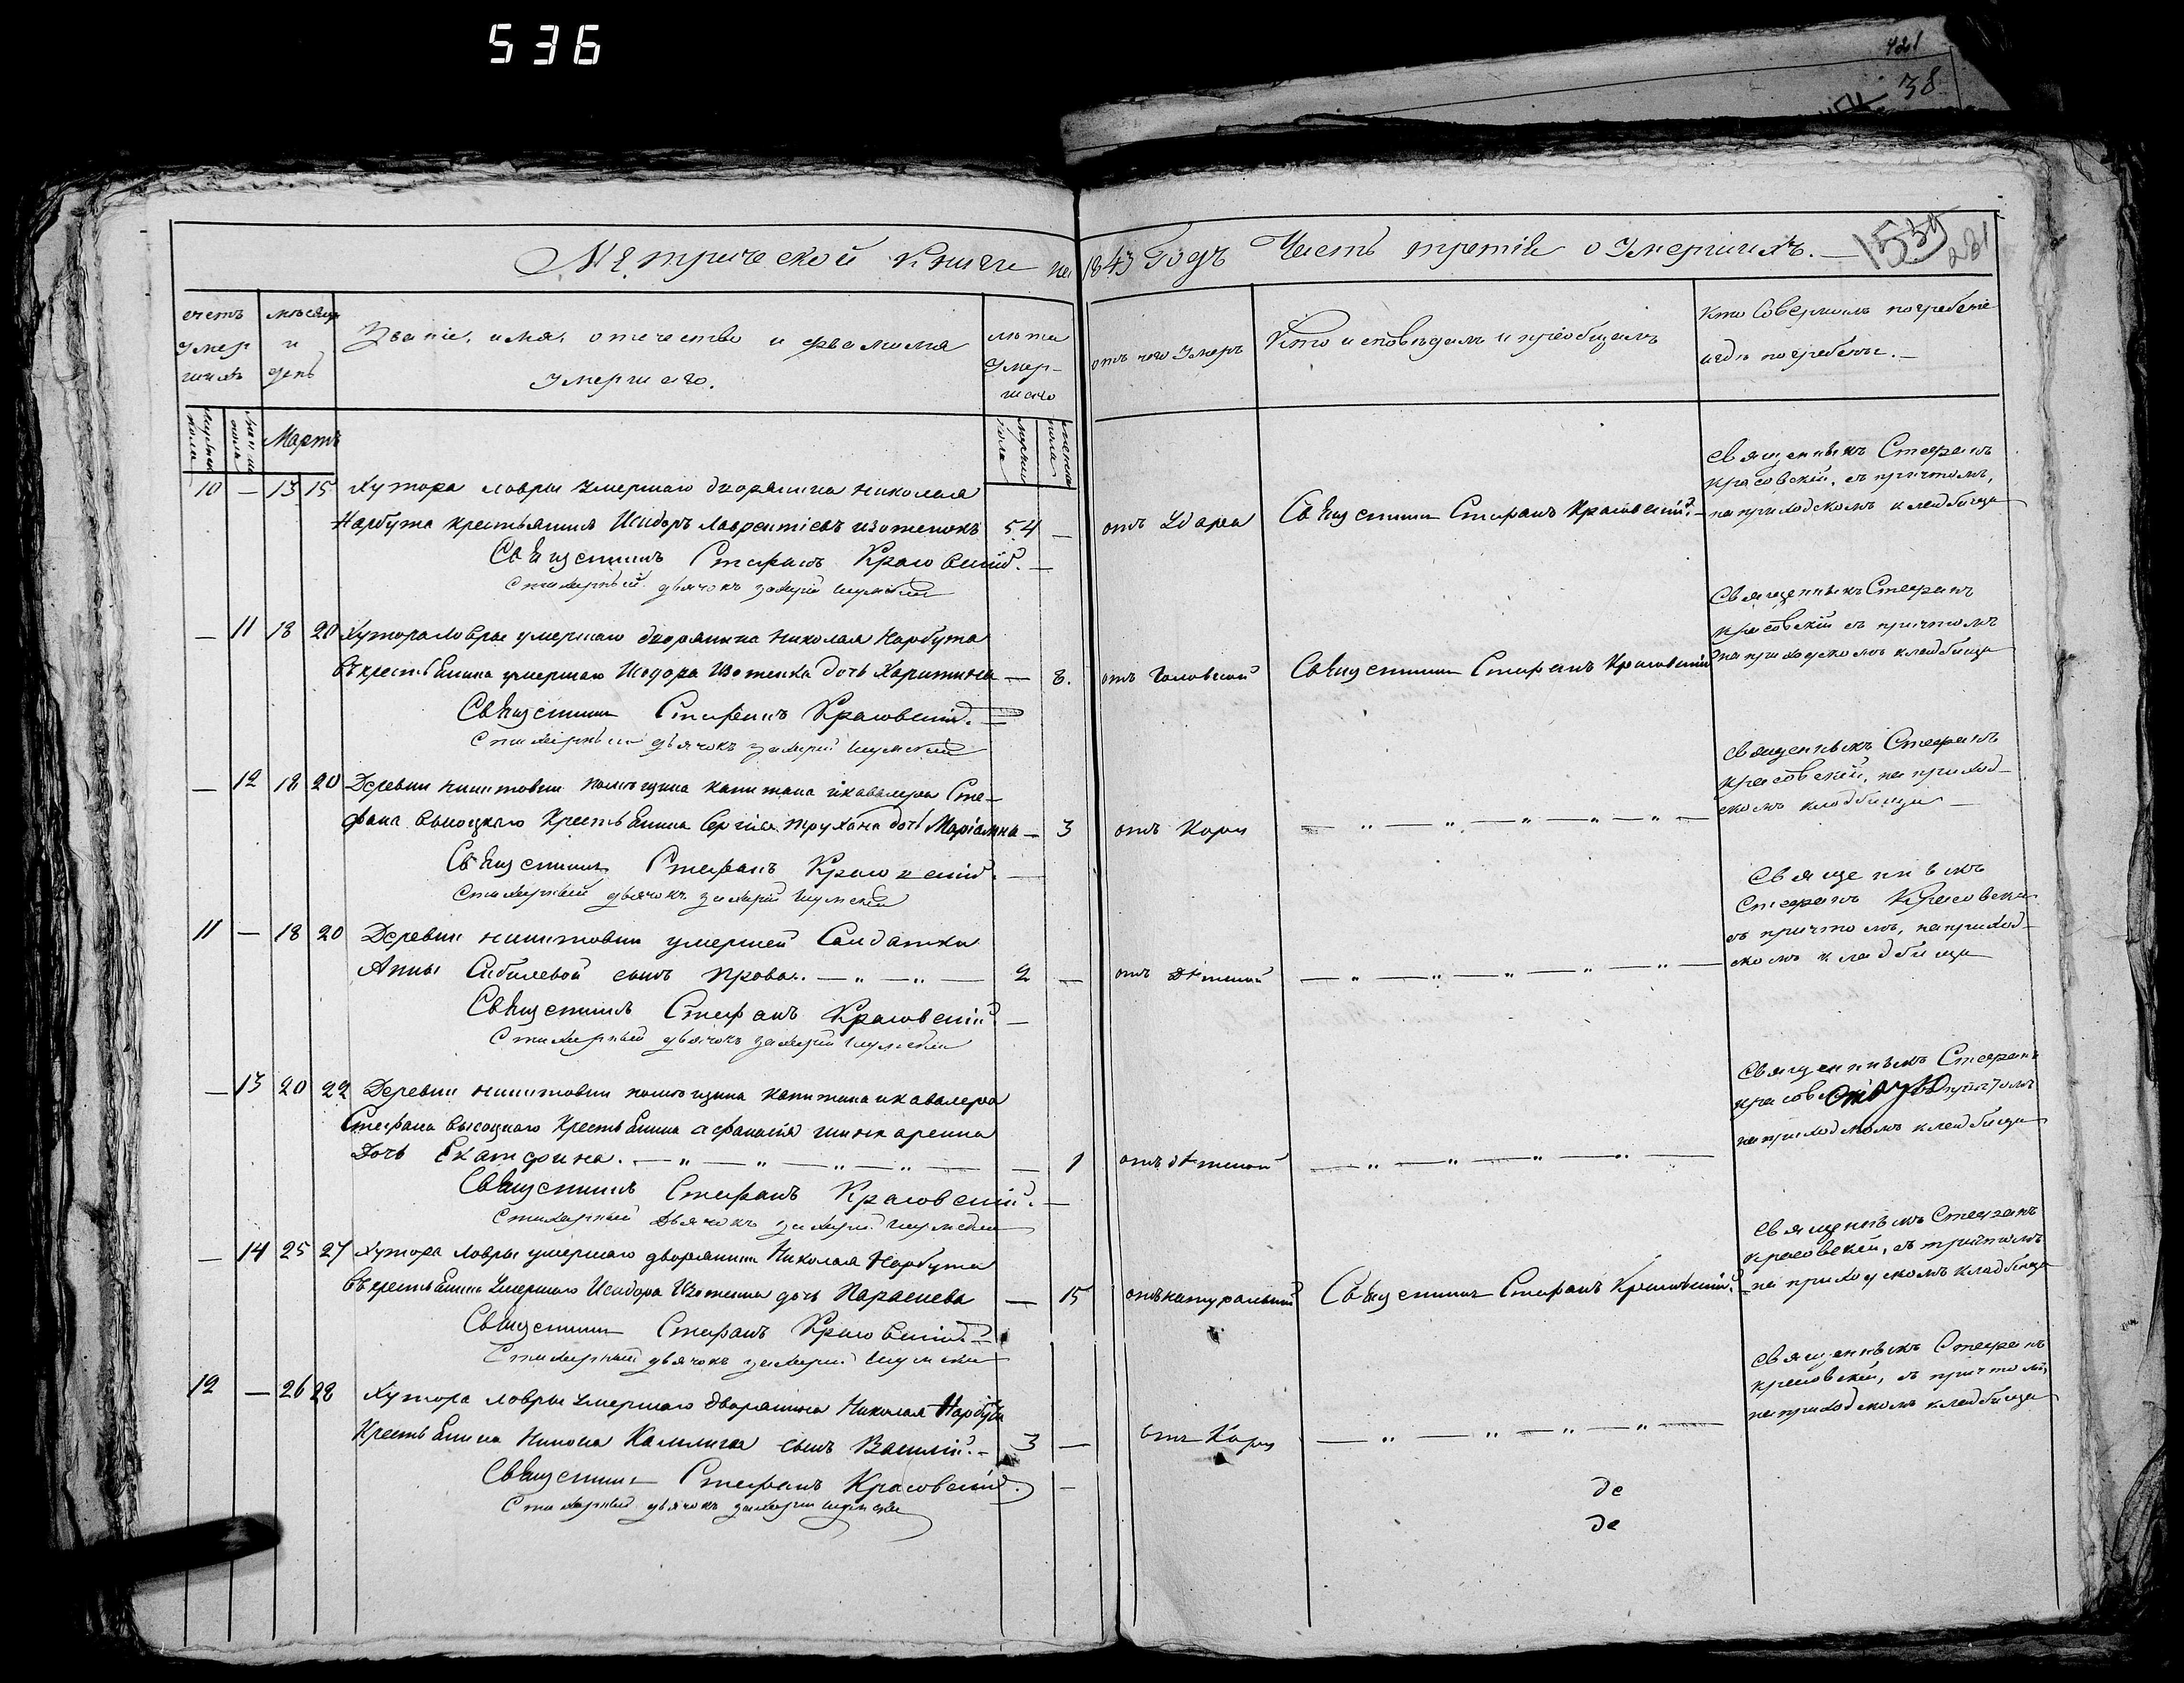 536
421
38
Метрической книги на 1843 Годъ Часть третія о Умершихъ.
539
281
счетъ умершихъ
мѣсяцъ и день
Званіе, имя, отечество и фамилія умершаго.
лѣта умершаго
отъ чего умеръ
Кто исповѣдалъ и пріобщалъ
Кто Совершалъ погребеніе и гдѣ погребены.
мужеска пола
женска пола
Мартъ
мужска пола
женска пола
10 — 13 15 Хутора Лавры умершаго дворянина Николая
Нарбута крестьянинъ Исидоръ Лаврентіевъ Изотенокъ 54 —
отъ Удара
Священникъ Стефанъ Красовскій.
Священникъ Стефанъ
Красовскій, съ причтомъ,
на приходскомъ кладбищѣ
Священникъ Стефанъ Красовскій.
Стихарный дьячокъ Захарій Шумскій
— 11 18 20 Хутора Лавры умершаго дворянина Николая Нарбута
крестьянина умершаго Исидора Изотенка дочь Харитина — 8.
отъ Головной
Священникъ Стефанъ Красовскій
Священникъ Стефанъ
Красовскій съ причтомъ
на приходскомъ кладбищѣ
Священникъ Стефанъ Красовскій.
Стихарный дьячокъ Захарій Шумскій
— 12 18 20 Деревни Нишитовки помѣщика капитана и кавалера Сте-
фана Высоцкаго Крестьянина Сергія Трухана дочь Маріанна — 3
отъ Кори
— „ — „ — „ — „ — „ —
Священникъ Стефанъ
Красовскій, на приход-
скомъ кладбищѣ
Священникъ Стефанъ Красовскій.
Стихарный дьячокъ Захарій Шумскій
11 — 18 20 Деревни Нишитовки умершей Салдатки
Анны Сибилевой сынъ Прова. — „ — „ — 2 —
отъ Дѣтской
— „ — „ — „ — „ —
Священникъ
Стефанъ Красовскій
съ причтомъ, на приход-
скомъ кладбищѣ
Священникъ Стефанъ Красовскій.
Стихарный дьячокъ Захарій Шумскій
— 13 20 22 Деревни Нишитовки помѣщика капитана и кавалера
Стефана Высоцкаго Крестьянина Афанасія
Дочь Екатерина. — „ — „ — „ — „ — 1
отъ дѣтской
— „ — „ — „ — „ —
Священникъ Стефанъ
причтомъ
на приходскомъ кладбищѣ
Священникъ Стефанъ Красовскій.
Стихарный дьячокъ Захарій Шумскій
— 14 25 27 Хутора Лавры умершаго дворянина Николая Нарбута
крестьянина умершаго Исидора Изотенка дочь Параскева — 15
отъ натуральной
Священникъ Стефанъ Красовскій.
Священникъ Стефанъ
Красовскій, съ причтомъ
на приходскомъ кладбищѣ
Священникъ Стефанъ Красовскій.
Стихарный дьячокъ Захарій Шумскій
12 — 26 28 Хутора Лавры умершаго Дворянина Николая Нарбута
Крестьянина Никона Калинича сынъ Василій. — 3 —
отъ Кори
— „ — „ — „ — „ —
Священникъ Стефанъ
Красовскій, съ причтомъ,
на приходскомъ кладбищѣ
Священникъ Стефанъ Красовскій.
Стихарный дьячокъ Захарій Шумскій
де
де